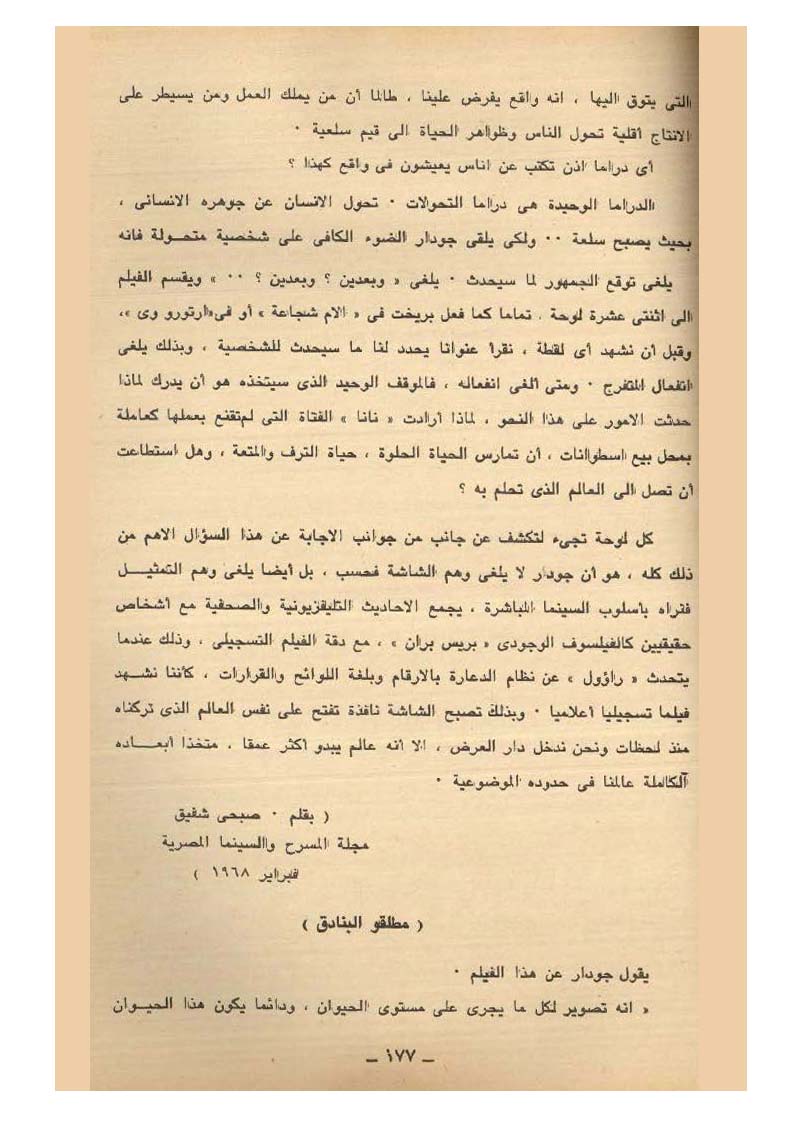 التى يتوق اليها ، انه واقع يفرض علينا ، طالما أن من يملك العمل ومن يسيطر على
الانتاج أقلية تحول الناس وظواهر الحياة الى قيم سلعية ٠
أى دراما اذن تكتب عن اناس يعيشون فى واقع كهذا ؟
الدراما الوحيدة هى دراما التحولات ٠ تحول الانسان عن جوهره الانسانى ،
بحيث يصبح سلعة ٠٠ ولكى يلقى جودار الضوء الكافى على شخصية متحـولة فانه
يلغى توقع الجمهور لما سيحدث ٠ يلغى « وبعدين ؟ وبعدين ؟ ٠٠ » ويقسم الفيلم
الى اثنتى عشرة لوحة ، تماما كما فعل بريخت فى « الام شجاعة » أو فى«ارتورو وى »،
وقبل أن نشهد أى لقطة ، نقرأ عنوانا يحدد لنا ما سيحدث للشخصية ، وبذلك يلغى
انفعال المتفرج ٠ ومتى ألغى انفعاله ، فالموقف الوحيد الذى سيتخذه هو أن يدرك لماذا
حدثت الامور على هذا النحو ، لماذا أرادت « نانا » الفتاة التى لم‌تقنع بعملها كعاملة
بمحل بيع اسطوانات ، أن تمارس الحياة الحلوة ، حياة الترف والمتعة ، وهل استطاعت
أن تصل الى العالم الذى تحلم به ؟
كل لوحة تجىء لتكشف عن جانب من جوانب الاجابة عن هذا السؤال الاهم من
ذلك كله ، هو أن جودار لا يلغى وهم الشاشة فحسب ، بل أيضا يلغى وهم التمثيـــل
فنراه بأسلوب السينما المباشرة ، يجمع الاحاديث التليفزيونية والصحفية مع أشخاص
حقيقيين كالفيلسوف الوجودى « بريس بران » ، مع دقة الفيلم التسجيلى ، وذلك عندما
يتحدث « راؤول » عن نظام الدعارة بالارقام وبلغة اللوائح والقرارات ، كأننا نشـــهد
فيلما تسجيليا أعلاميا ٠ وبذلك تصبح الشاشة نافذة تفتح على نفس العالم الذى تركناه
منذ لحظات ونحن ندخل دار العرض ، الا أنه عالم يبدو أكثر عمقا ، متخذا أبعـــاده
الكاملة عالمنا فى حدوده الموضوعية ٠
( بقلم ٠ صبحى شفيق
مجلة المسرح والسينما المصرية
فبراير ١٩٦٨ )
( مطلقو البنادق )
يقول جودار عن هذا الفيلم ٠
« انه تصوير لكل ما يجرى على مستوى الحيوان ، ودائما يكون هذا الحيـوان
ــ ١٧٧ ــ